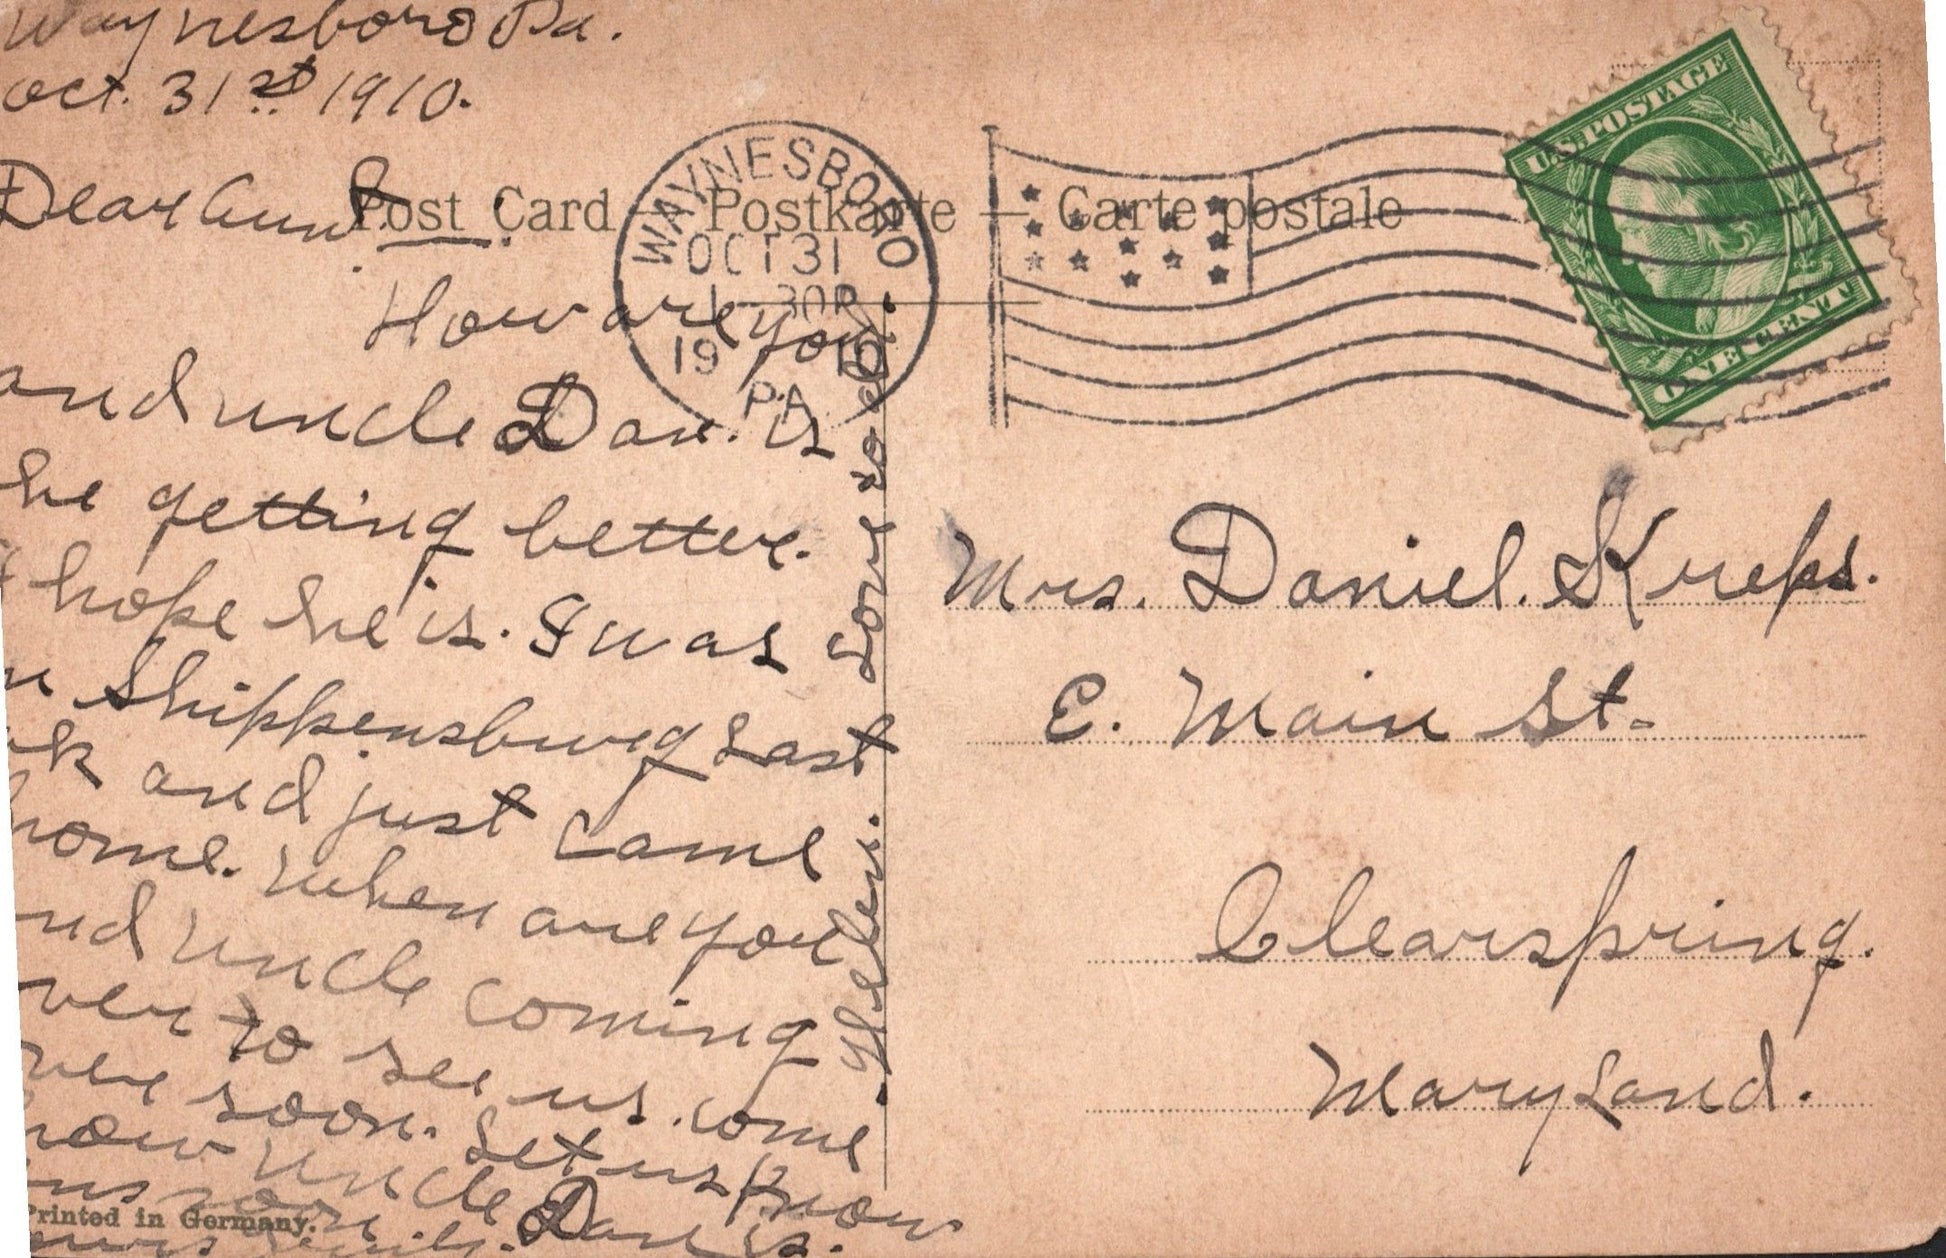 Waynesboro Pa.
Oct. 31st 1910.
Dear Aunt
Post Card — Postkarte — Carte postale
WAYNESBORO
OCT 31
1-30P
1910
PA.
U.S. POSTAGE
ONE CENT
How are you
and uncle Dan. is
he getting better.
I hope he is. I was
in Shippensburg last
wk and just came
home. When are you
and uncle coming
over to see us. come
over soon. Let us know
how uncle Dan is.
ans soon
Printed in Germany.
Love to all.
Helen.
Mrs. Daniel. Kreps.
E. Main St.
Clearspring.
Maryland.